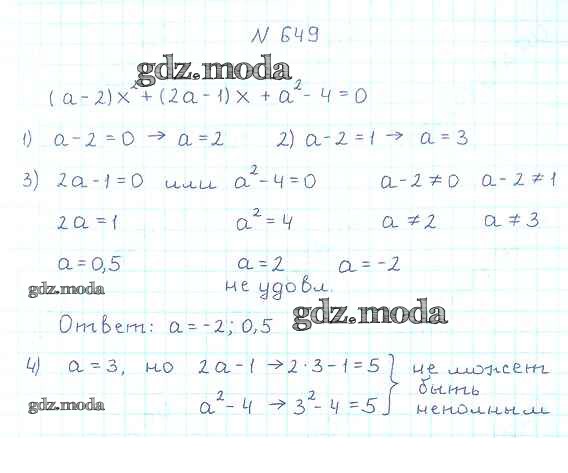 N 649
gdz.moda
(a-2)x²+(2a-1)x+a²-4=0
1) a-2=0 → a=2 2) a-2=1 → a=3
3) 2a-1=0 или a²-4=0 a-2≠0 a-2≠1
2a=1 a²=4 a≠2 a≠3
a=0,5 a=2 a=-2
gdz.moda не удовл. gdz.moda
Ответ: a=-2; 0,5
4) a=3, но 2a-1 → 2·3-1=5 } не может
быть
gdz.moda a²-4 → 3²-4=5 неполным